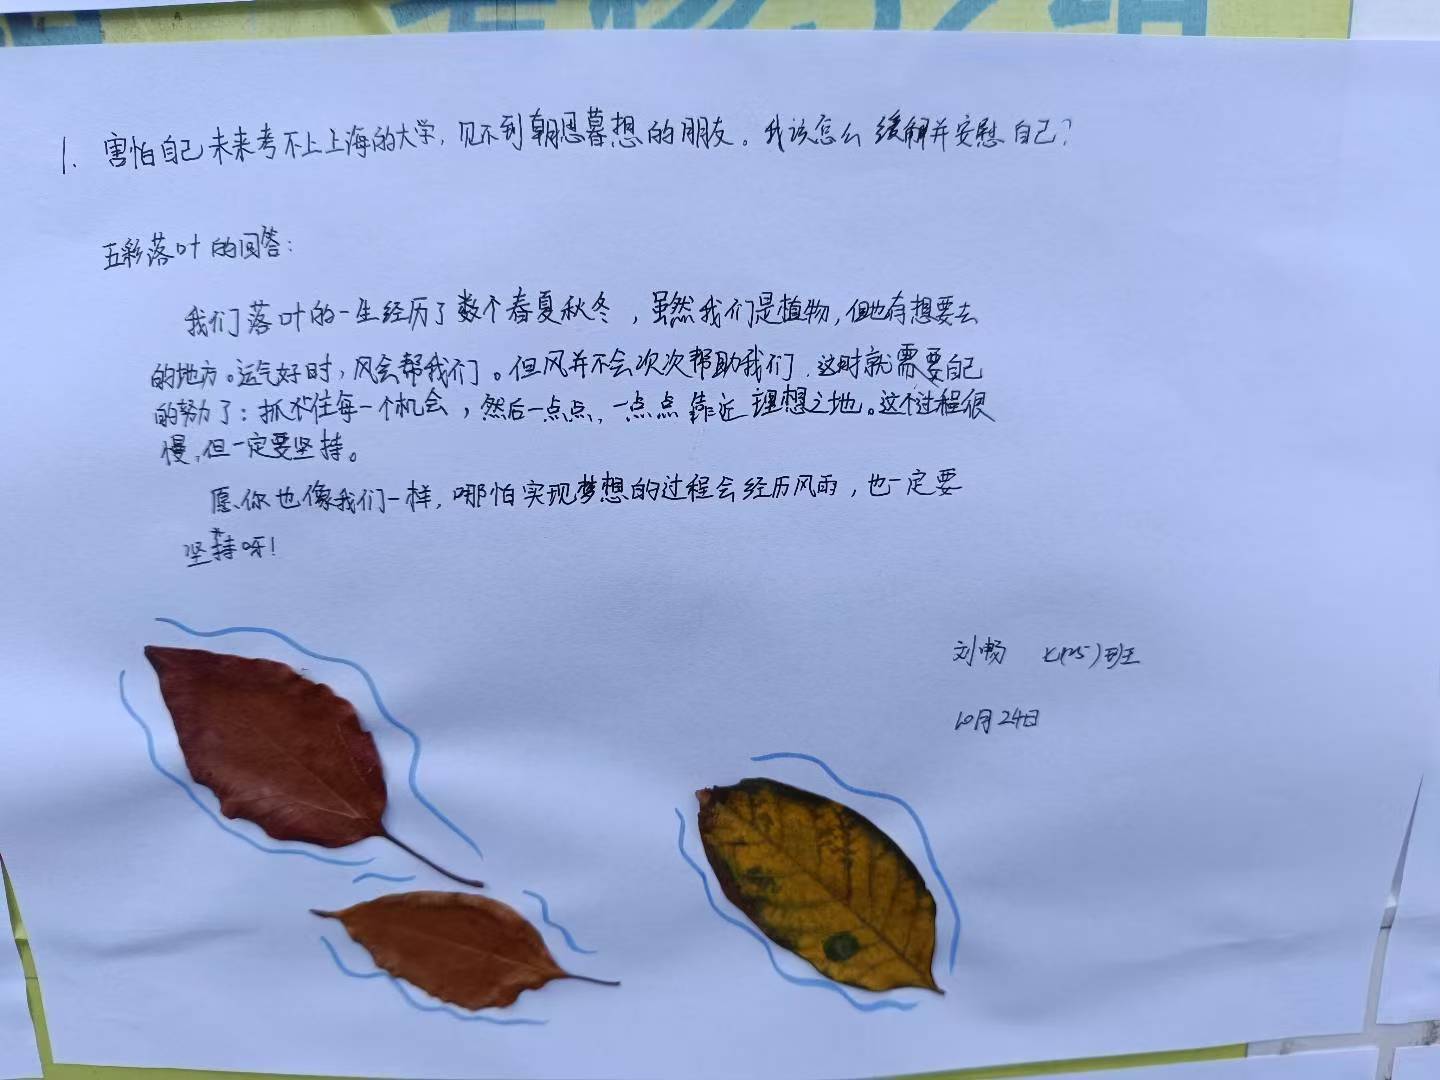 1. 害怕自己未来考不上上海的大学,见不到朝思暮想的朋友。我该怎么缓解并安慰自己?
五彩落叶的回答:
我们落叶的一生经历了数个春夏秋冬,虽然我们是植物,但也有想要去
的地方。运气好时,风会帮我们。但风并不会次次帮助我们,这时就需要自己
的努力了:抓住每一个机会,然后一点点、一点点靠近理想之地。这个过程很
慢,但一定要坚持。
愿你也像我们一样,哪怕实现梦想的过程会经历风雨,也一定要
坚持呀!
刘畅 七(25)班
10月24日